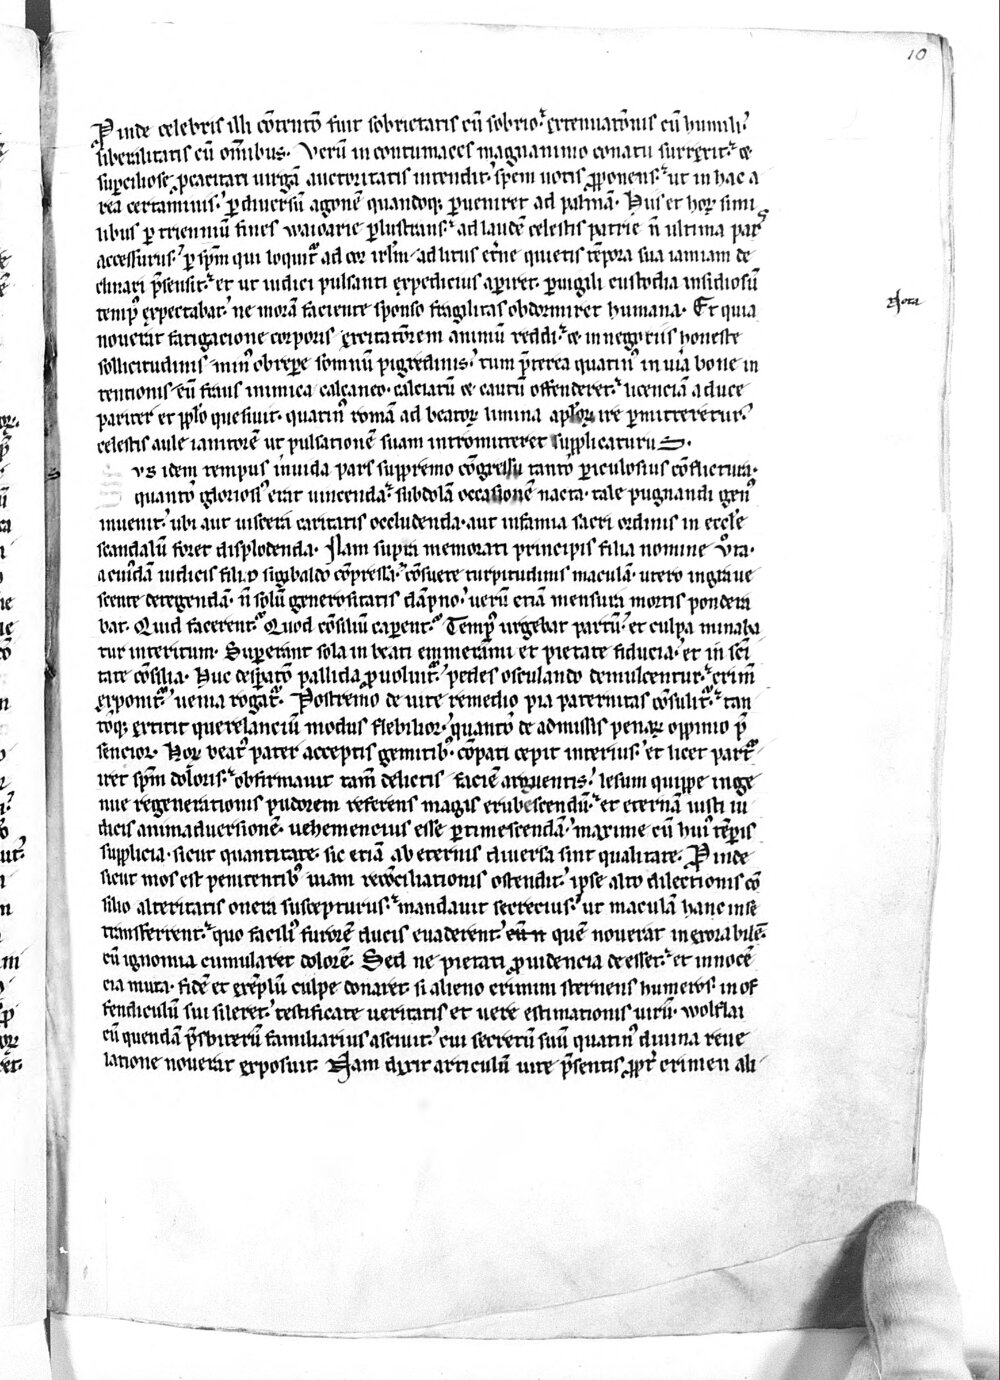 10
Pinde celebris illi cōtentō fuit sobrietatis cū sobrio. extenuatōnis cū humili.
liberilitatis cū om̄ibus. Verū in contumaces magnanimo conatu surrexit. ce
superciliose pcacitati uirgā auctoritatis intendit. spem uotis pponens. ut in hac a
rea certaminis. p diuersū agonē quandoq; pueniret ad palmā. His et hoꝝ simi
libus p trienniū fines waioarie plustrans. ad laudē celestis patrie n̄ ultima par
accessurus. p sp̄m qui loquit̉ ad cor irl̄m. ad litus et̄ne quietis tēpora sua iamiam de
clinari p̄sensit. et ut iudici pulsanti expedicius apiret. puigili custodia insidiosū
temp̉ expectabat. ne morā faciente sponso fragilitas obdormiret humana. Et quia
Nota
nouerat fatigacione corporis excitatōrem animū reddi. ce in negociis honeste
sollicitudinis min̉ obrepe somnū pigredinis. tum p̄terea quatin̉ in uia bone in
tentionis eū fraus inimica calcaneo. calciatū ce cautū offenderet. licenciā a duce
pariter et pplo quesiuit. quatin̉ romā ad beatoꝝ limina apl̄oꝝ ire pmitteretur.
celestis aule ianitorē ut pulsationē suam intromitteret supplicaturus.
vs idem tempus inuida pars suppremo cōgressu tantō piculosius cōflictura.
quantō glorios̉ erat uincenda. subdolā occasionē nacta. tale pugnandi gen̉
inuenit. ubi aut uiscera caritatis occludenda. aut infamia sacri ordinis in eccl̄e
scandalū foret displodenda. Nam supra memorati principis filia nomine vta.
a cuiusdā iudicis filio sigibaldo cōpressa. cōsuete turpitudinis maculā. utero ingraue
scente detegendā. n̄ solū generositatis dāpno. uerū etiā mensura mortis pondera
bat. Quid facerent. Quod cōsiliū caperent. Temp̉ urgebat partū. et culpa minaba
tur interitum. Superant sola in beati emmerami et pietate fiducia. et in sc̄i
tate cōsilia. Huc despatō pallida puoluit̉. pedes osculando demulcentur. crim̄
exponit̉. uenia rogat̉. Postremo de uite remedio pia paternitas cōsulit̉. tan
tōq; extitit querelanciū modus flebilior. quantō de admissis penaꝝ oppinio p̄
sencior. Hoꝝ beat̉ pater acceptis gemitib; cōpati cepit interius. et licet part̉
iret sp̄m doloris. obfirmauit tam̄ delictis faciē arguentis. lesum quippe inge
nue regenerationis pudorem referens magis erubescendū. et eternā iusti iu
dicis animaduersionē. uehemencius esse ptimescendā. maxime cū huỉ tēpris
supplicia. sicut quantitate. sic etiā ab eternis diuersa sint qualitate. Pinde
sicut mos est penitentib; uiam recōciliationis ostendit. ipse alto dilectionis cō
silio alteritatis onera suscepturus. mandauit secrecius. ut maculā hanc in se
transferrent. quo facilỉ furorē ducis euaderent. quē nouerat inexorabilē.
cū ignomia cumularet dolorē. Sed ne pietati puidencia deesset. et innocē
cia muta. fidē et exēplū culpe donaret. si alieno crimini sternens humeros. in of
fendiculū sui sileret. testificate ueritatis et uere estimationis uirū. wolflai
cū quendā p̄sbiterū familiarius asciuit. cui secretū suū quatin̉ diuina reue
latione nouerat exposuit. Nam dixit articulū uite p̄sentis ppt̉ crimen ali